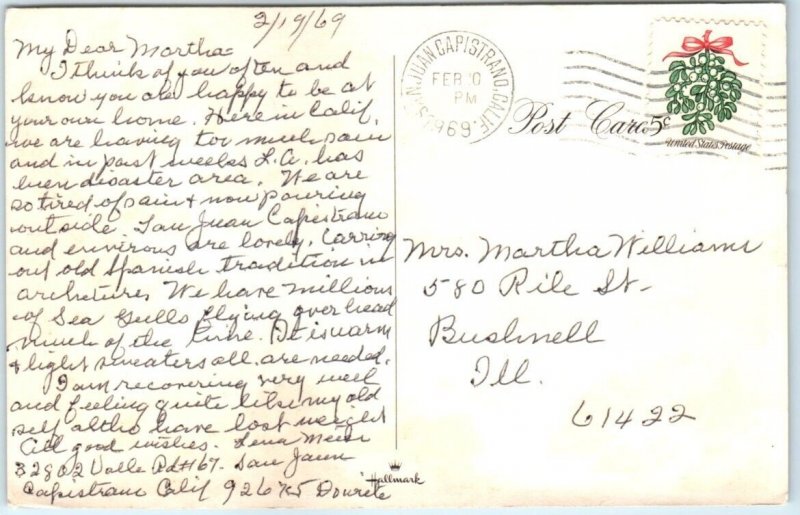 2/19/69
My Dear Martha:
I think of you often and
know you are happy to be at
your own home. Here in Calif.
we are having too much rain
and in past weeks L.A. has
been disaster area. We are
so tired of rain & now pouring
outside. San Juan Capistrano
and environs are lovely. Carring
out old Spanish tradition in
We have millions
of Sea Gulls flying over head
much of the time. It is warm
& light sweaters all are needed.
I am recovering very well
and feeling quite like my old
self altho have lost weight
All good wishes. Lena
32802 Valle Rd #167. San Juan
Capistrano Calif 92675
SAN JUAN CAPISTRANO, CALIF.
FEB
PM
1969
Post Card
5¢
United States Postage
Mrs. Martha Williams
580 Pile St.
Bushnell
Ill.
61422
Hallmark